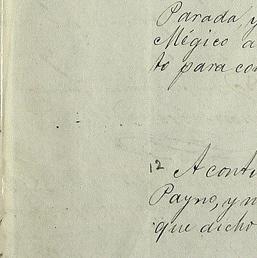 Parada y
Mégico a
to para con
12 A conti
Payno, y n
que dicho